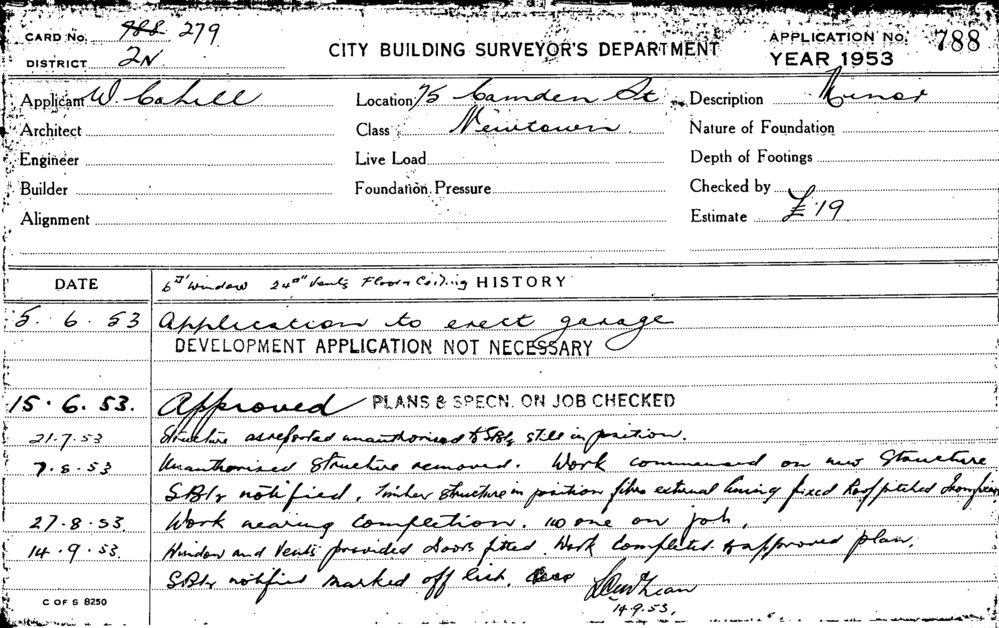 CARD No. 788 279
DISTRICT 2N
CITY BUILDING SURVEYOR'S DEPARTMENT
APPLICATION No. 788
YEAR 1953
Applicant W Cahill Location 75 Camden St Description Minor
Architect Class Newtown Nature of Foundation
Engineer Live Load Depth of Footings
Builder Foundation Pressure Checked by
Alignment Estimate £19
DATE 6□' Window 24□" Vents Floor & Ceiling HISTORY
5.6.53 Application to erect garage
DEVELOPMENT APPLICATION NOT NECESSARY
15.6.53. Approved PLANS & SPECN. ON JOB CHECKED
21.7.53 Structure as reported unauthorised to still in position.
7.8.53 Unauthorised Structure removed. Work commenced on new Structure
notified. Timber structure in position fibro external lining fixed Roof pitched
27.8.53. Work nearing Completion. no one on job.
14.9.53. Window and Vents provided Doors fitted. Work Completed to approved plan.
notified marked off list.
14.9.53.
C OF S 8250